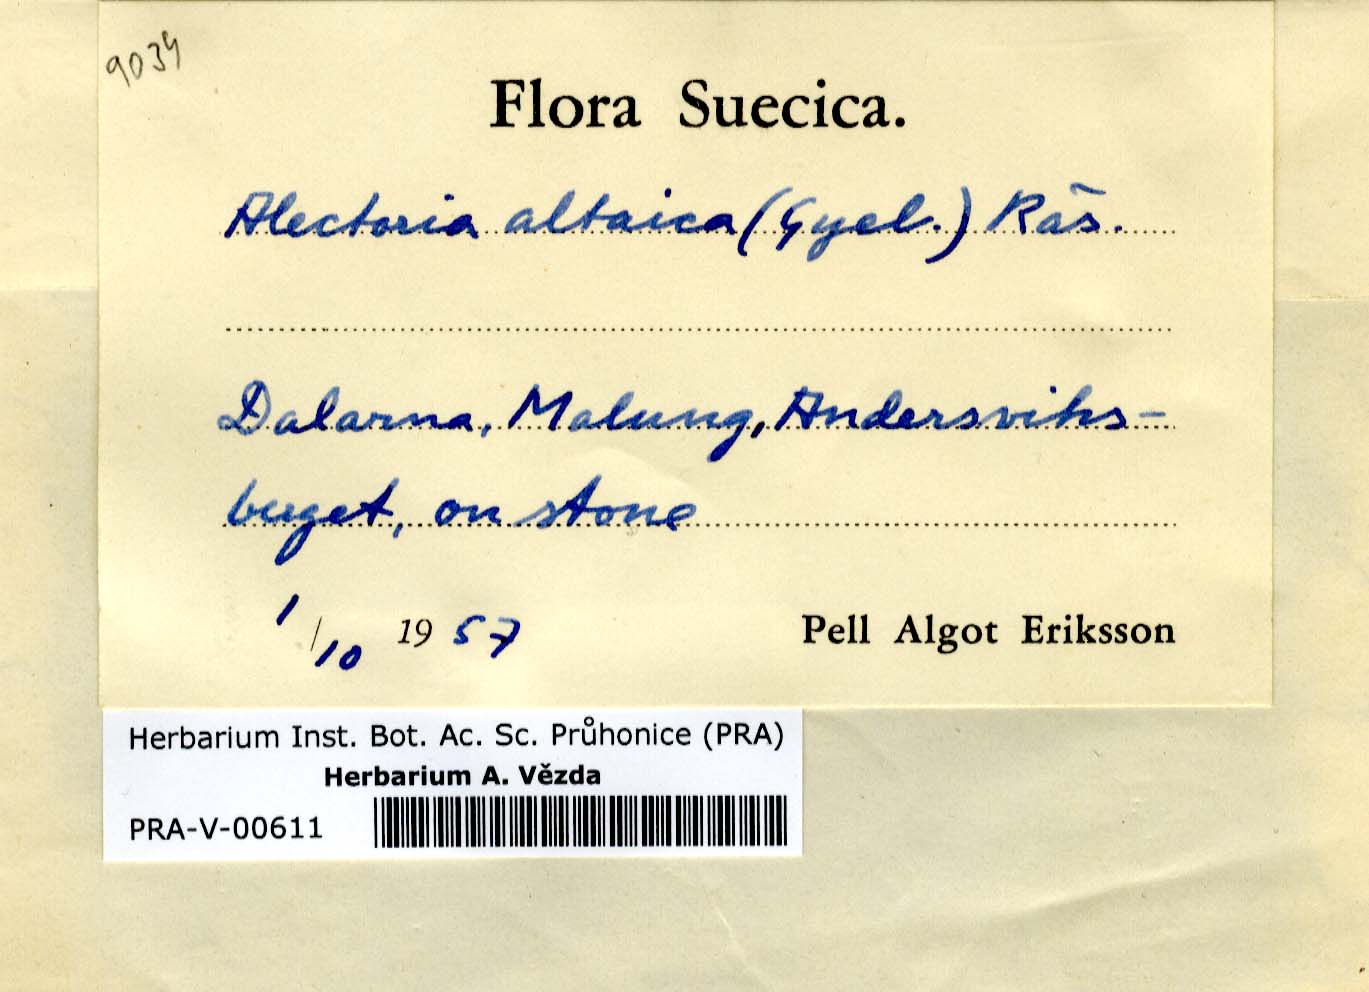 9034
Flora Suecica.
Alectoria altaica (Gyel.) Räs.
Dalarna, Malung, Andersviks-
berget, on stone
1/10 1957 Pell Algot Eriksson
Herbarium Inst. Bot. Ac. Sc. Průhonice (PRA)
Herbarium A. Vězda
PRA-V-00611